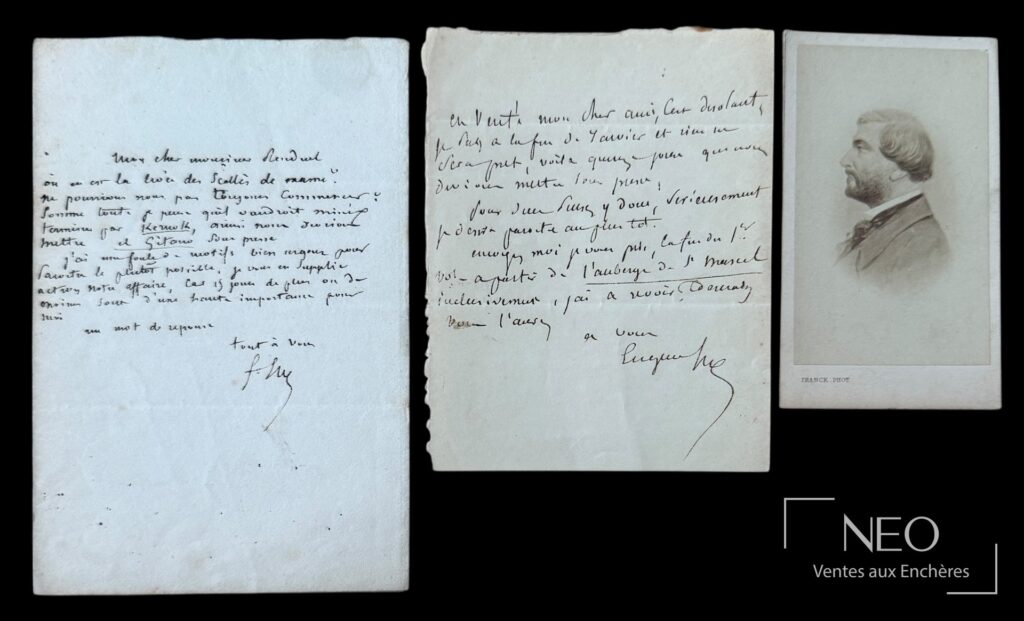 Mon cher monsieur Renduel
où en est la levée des Scellés de
ne pourrions nous pas toujours Commencer?
Somme toute je pense qu'il vaudroit mieux
terminer par Kernok, ainsi nous devrions
mettre el Gitano Sous presse
j'ai une foule de motifs bien urgens pour
le plutot possible, je vous en supplie
notre affaire, Car 15 jours de plus ou de
moins Sont d'une haute importance pour
moi
un mot de reponse
tout à vous
Sue
en Verité mon cher ami, C'est desolant,
à la fin de Janvier et rien ne
Sera pret, voila quinze jours que nous
devrions mettre Sous presse,
donc, Serieusement
paroitre au plus tot.
envoyez moi je vous prie, la fin du 1er
vol. a partir de l'auberge de St Marcel
inclusivement, j'ai a revoir,
vous l'aurez
a vous
Eugene Sue
FRANCK PHOT.
NEO
Ventes aux Enchères